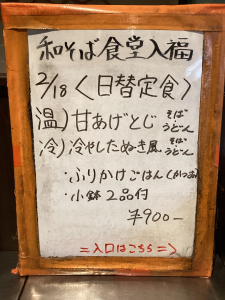 和そば食堂入福
2/18〈日替定食〉
温)甘あげとじ そば うどん
冷)冷やしたぬき風 そば うどん
・ふりかけごはん(かつお)
・小鉢2品付
¥900-
=入口はこちら=>